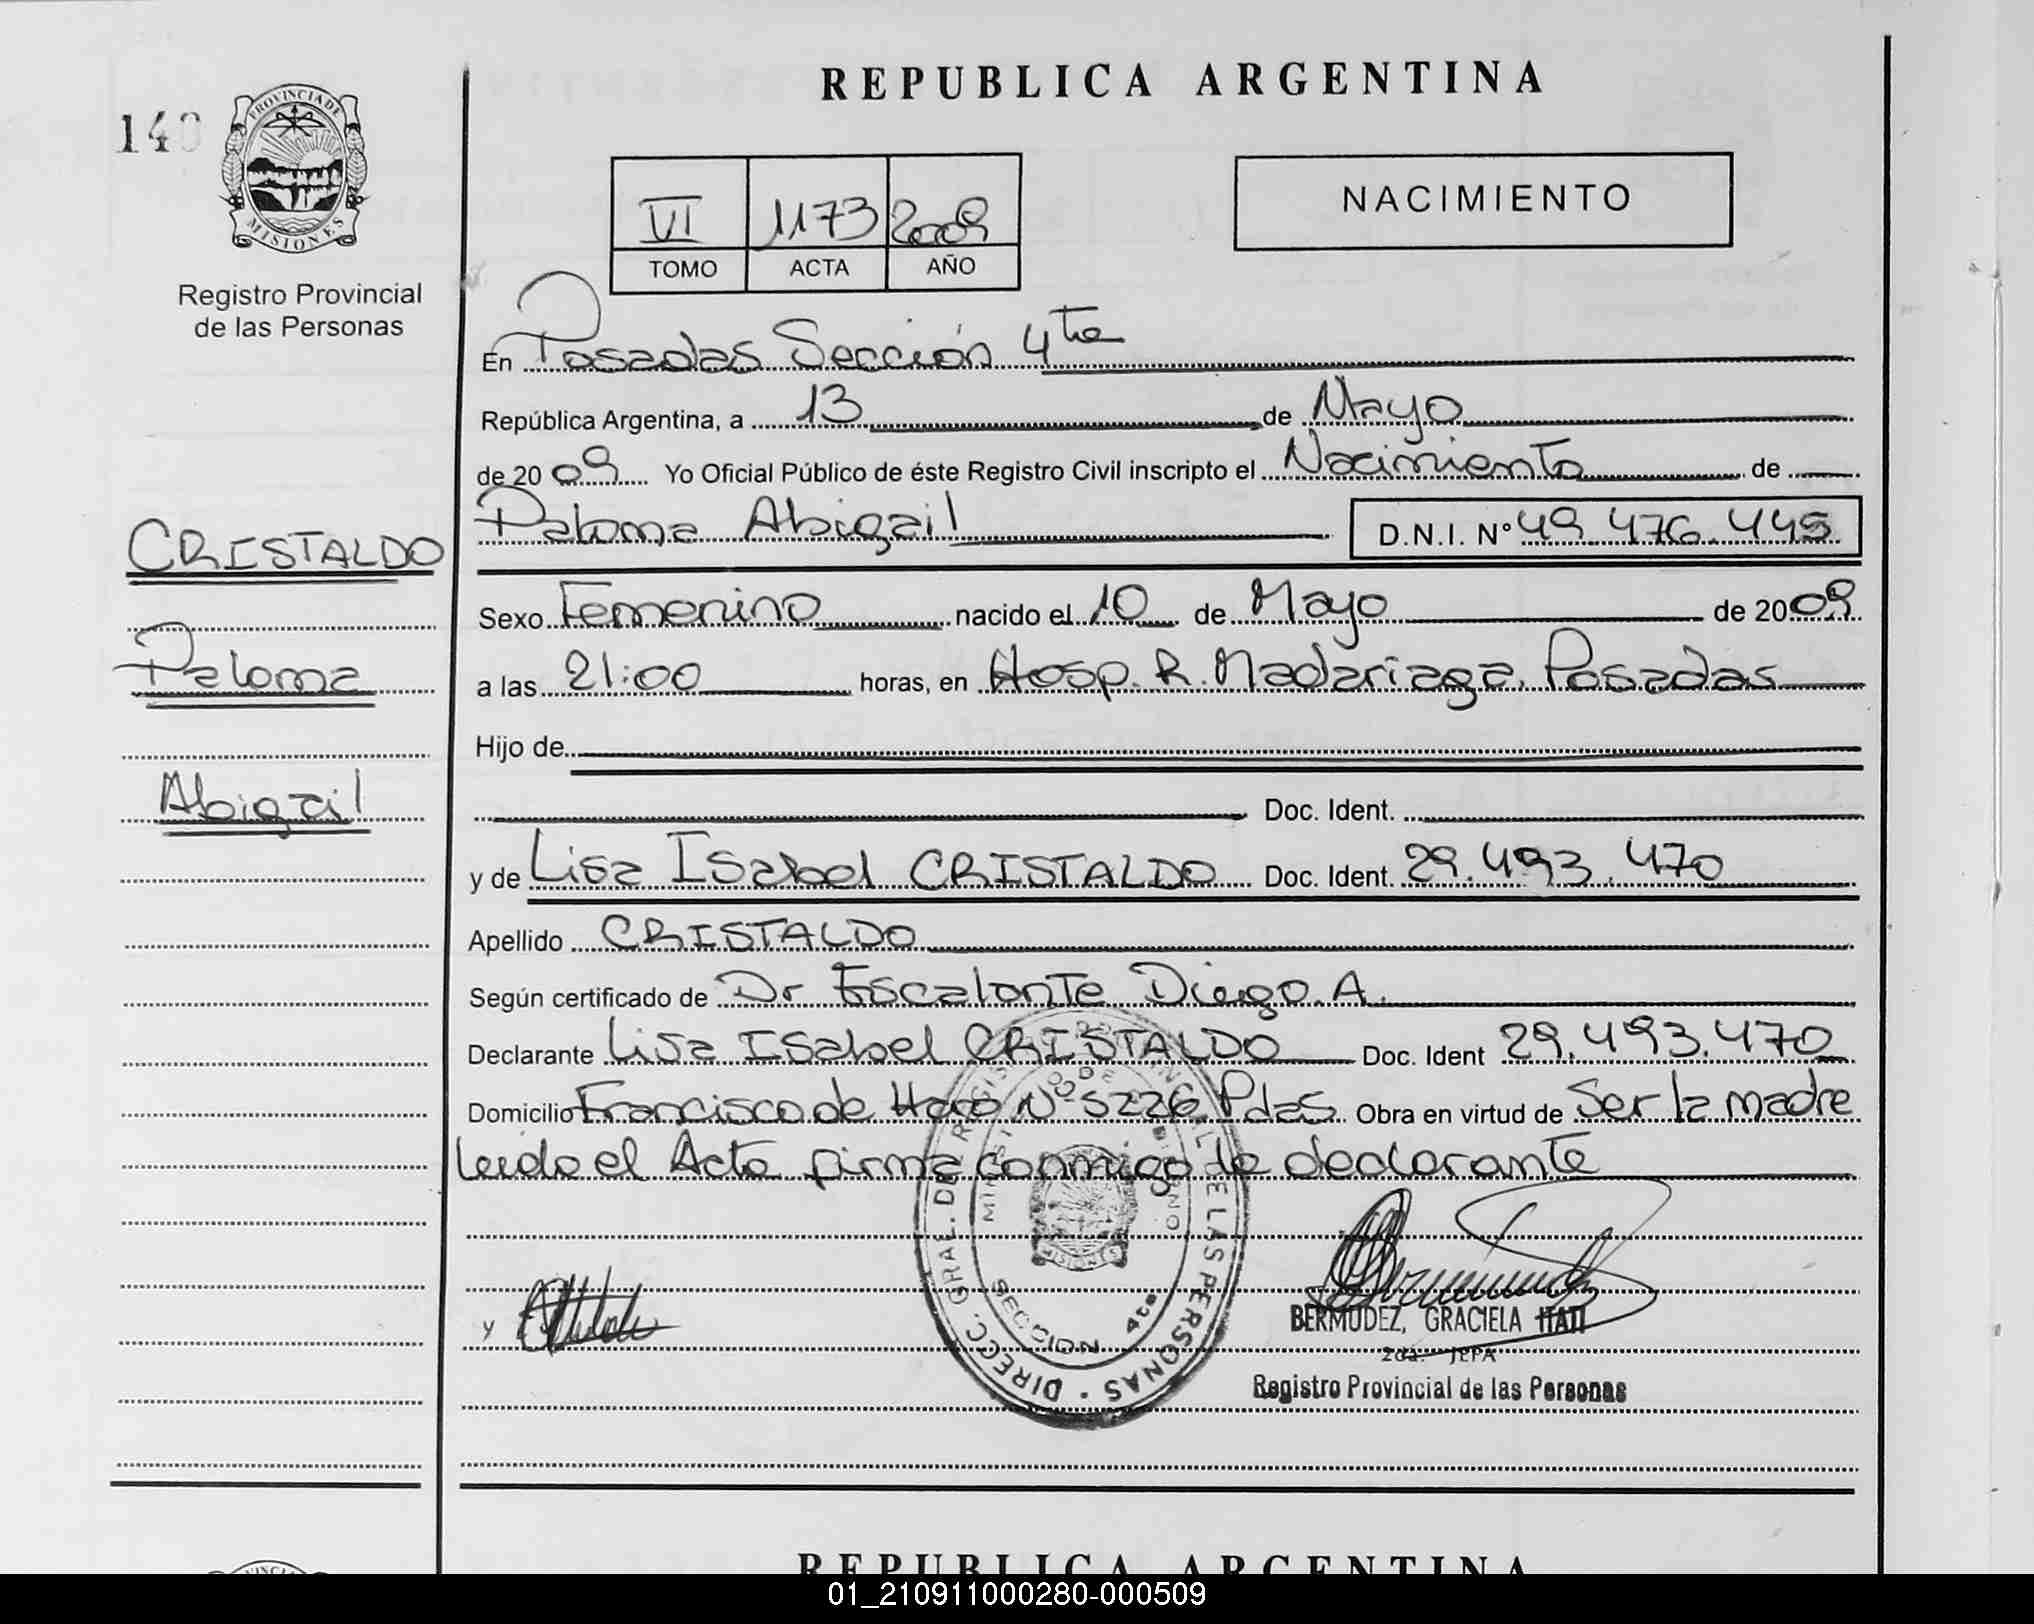 REPUBLICA ARGENTINA
PROVINCIA DE
MISIONES
Registro Provincial
de las Personas
VI 1173 2009
TOMO ACTA AÑO
NACIMIENTO
En Posadas Sección 4ta
República Argentina, a 13 de Mayo
de 2009 Yo Oficial Público de éste Registro Civil inscripto el Nacimiento de
Paloma Abigail D.N.I. Nº 49.476.445
CRISTALDO
Paloma
Abigail
Sexo Femenino nacido el 10 de Mayo de 2009
a las 21:00 horas, en Hosp. R. Madariaga. Posadas
Hijo de
Doc. Ident.
y de Lisa Isabel CRISTALDO Doc. Ident. 29.493.470
Apellido CRISTALDO
Según certificado de Dr Escalante Diego. A.
Declarante Lisa Isabel CRISTALDO Doc. Ident 29.493.470
Domicilio Francisco de Haro Nº 5226 Pdas. Obra en virtud de Ser la madre
leida el Acta firma conmigo la declarante
DIRECC. GRAL. DEL REGISTRO PROVINCIAL DE LAS PERSONAS
SECCION 4ta
MISIONES
y
BERMUDEZ, GRACIELA ITATI
2da. JEFA
Registro Provincial de las Personas
REPUBLICA ARGENTINA
01_210911000280-000509